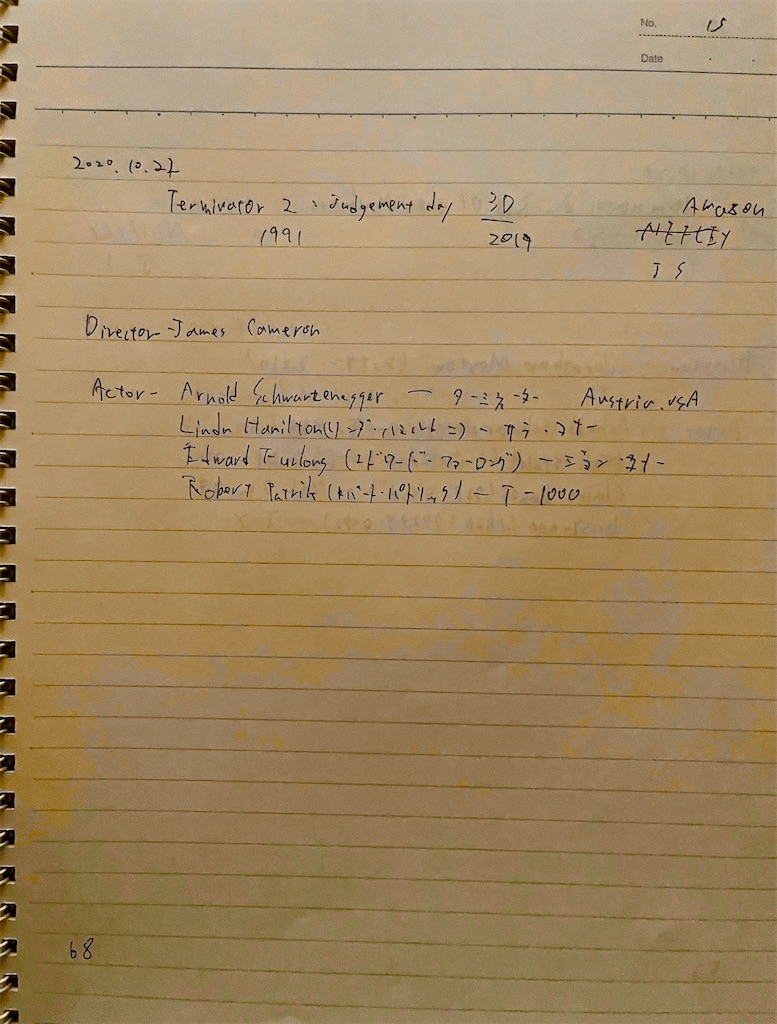 No. 15
Date
2020.10.27
Terminator 2 : Judgement day 3D Amazon
1991 2019 Netflix
J S
Director - James Cameron
Actor - Arnold Schwartenegger — ターミネーター Austria.USA
Linda Hamilton(リンダ・ハミルトン) - サラ・コナー
Edward Furlong (エドワード・ファーロング) - ジョン・コナー
Robert Patrik (ロバート・パトリック) - T-1000
68